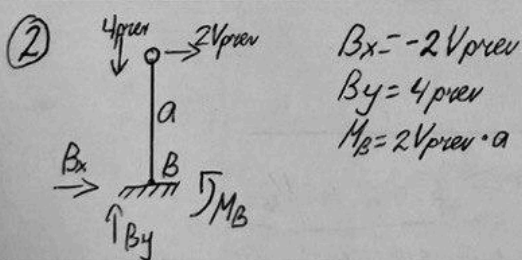 ②
4prev
2Vprev
a
B
Bx
By
MB
Bx=-2Vprev
By=4prev
MB=2Vprev·a